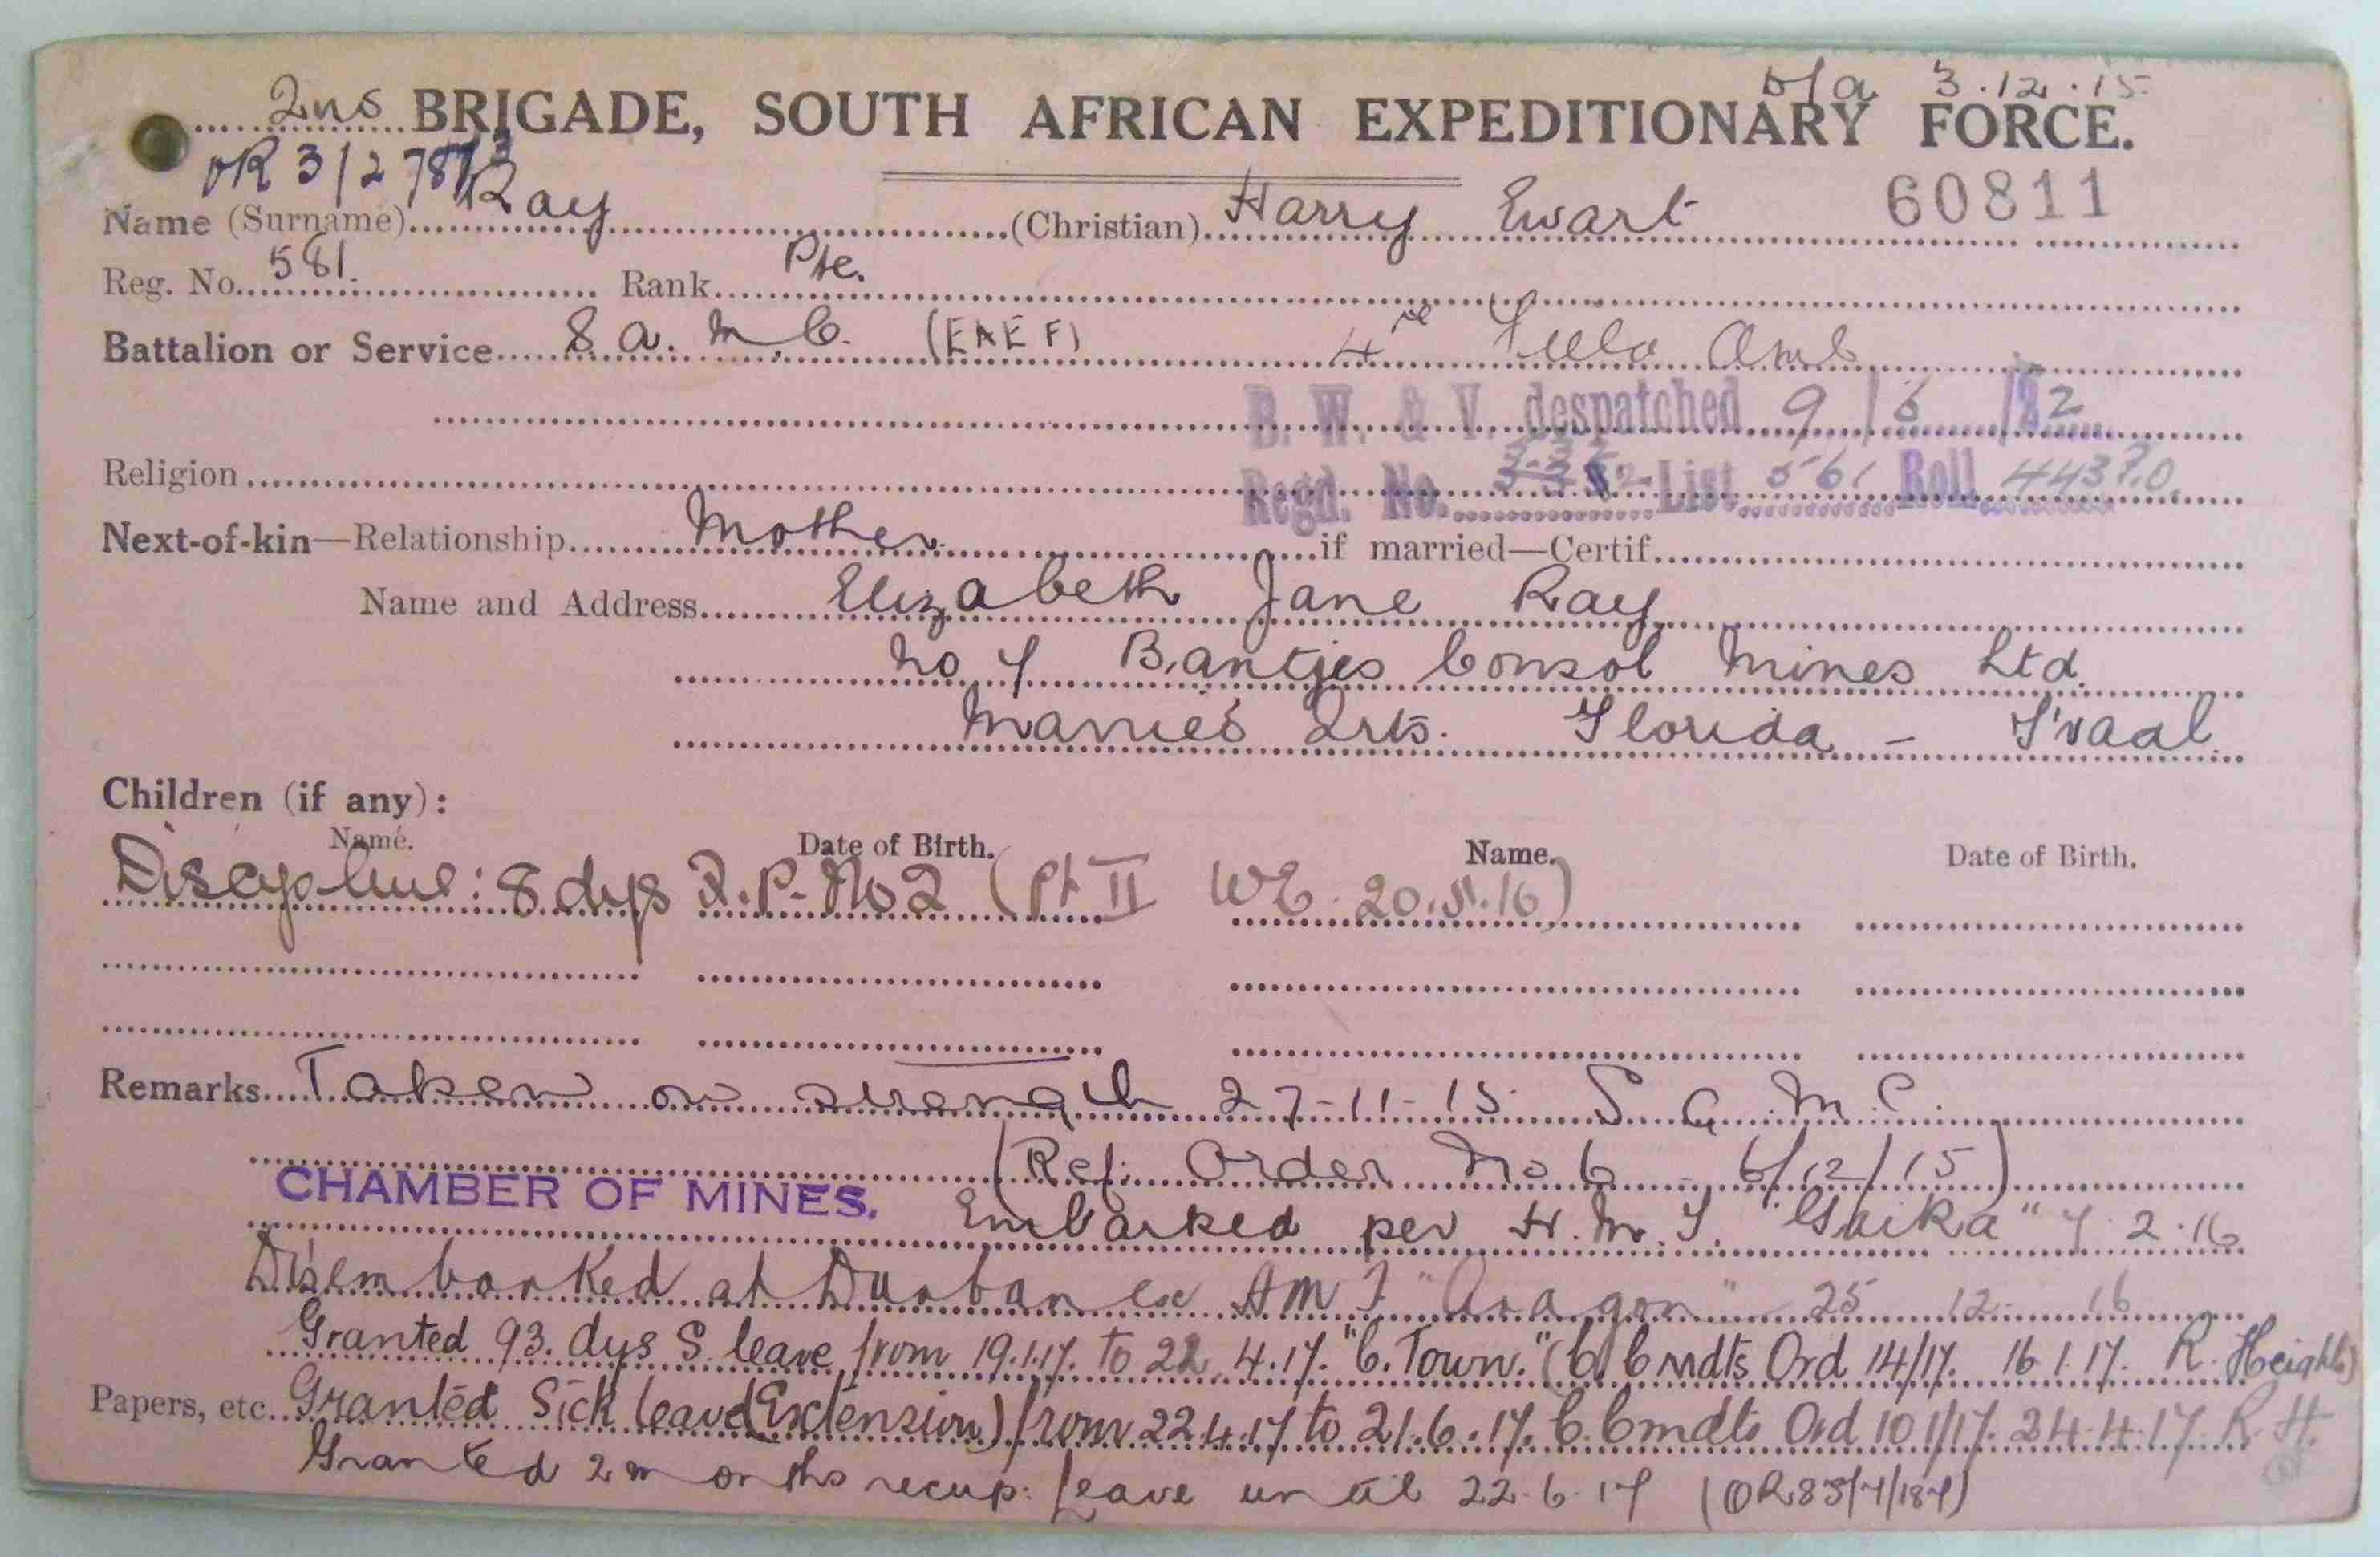 d/a 3.12.15
2nd BRIGADE, SOUTH AFRICAN EXPEDITIONARY FORCE.
OR 3/2
60811
Name (Surname) Ray (Christian) Harry Ewart
Reg. No. 581. Rank Pte.
Battalion or Service S.A.M.C. (EAEF) 4th Field Amb
B. W. & V. despatched 9/6/22
Regd. No. List 561 Roll
Religion
Next-of-kin—Relationship Mother if married—Certif.
Name and Address Elizabeth Jane Ray
No 7 Bantjes Consol Mines Ltd.
Married Qrts. Florida - T'vaal
Children (if any):
Name. Date of Birth. Name. Date of Birth.
Discipline: 8 dys F.P. No 2 (Pt II WE 20.5.16)
Remarks Taken on strength 27-11-15 S.A.M.C.
(Ref: Order No 6 - 6/12/15)
CHAMBER OF MINES.
Embarked per H.M.T. "Gaika" 7.2.16
Disembarked at Durban ex HMT "Aragon" 25 12 16
Granted 93. dys S. leave from 19.1.17. to 22.4.17. "C. Town." (C. Cmdts Ord 14/17. 16.1.17. R. Heights)
Papers, etc. Granted Sick leave (Extension) from 22.4.17 to 21.6.17. C. Cmdts Ord 101/17. 24.4.17. R.H.
Granted 2 months recup: leave until 22.6.17 (OR83/7/187)